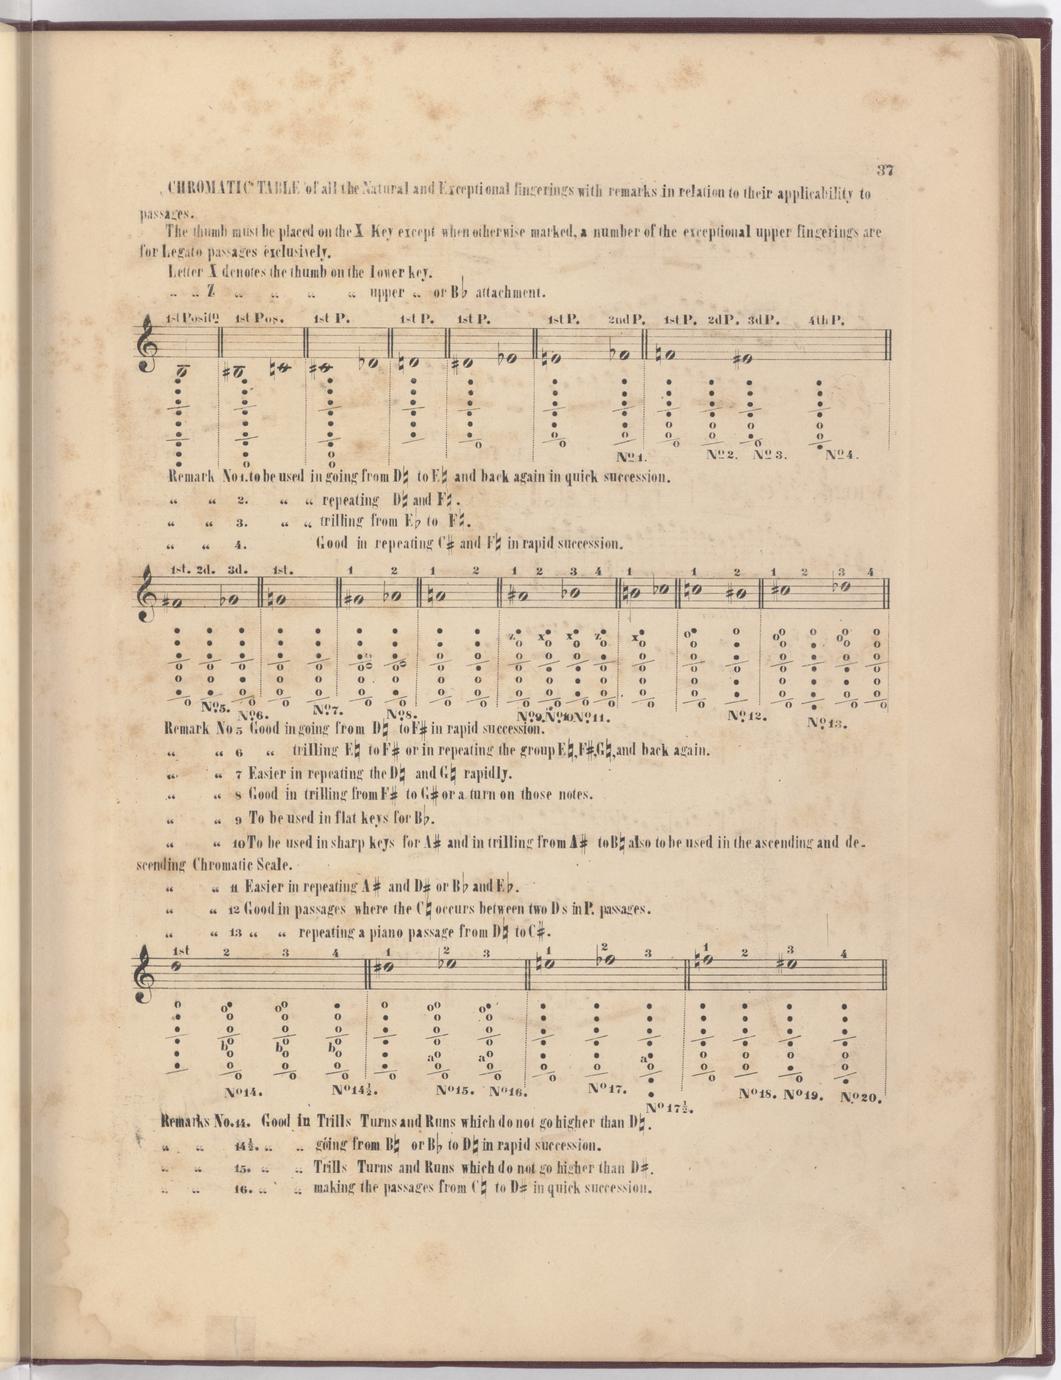 37
CHROMATIC TABLE of all the Natural and Exceptional fingerings with remarks in relation to their applicability to
passages.
The thumb must be placed on the X Key except when otherwise marked, a number of the exceptional upper fingerings are
for Legato passages exclusively.
Letter X denotes the thumb on the lower key.
„ „ Z „ „ „ „ upper „ or B♭ attachment.
1st Positn 1st Pos. 1st P. 1st P. 1st P. 1st P. 2nd P. 1st P. 2d P. 3d P. 4th P.
No 1. No 2. No 3. No 4.
Remark No 1. to be used in going from D♮ to E♮ and back again in quick succession.
“ “ 2. “ “ repeating D♮ and F♮.
“ “ 3. “ “ trilling from E♭ to F♮.
“ “ 4. Good in repeating C♯ and F♮ in rapid succession.
1st. 2d. 3d. 1st. 1 2 1 2 1 2 3 4 1 1 2 1 2 3 4
z x x z x
No 5. No 6. No 7. No 8. No 9. No 10 No 11. No 12. No 13.
Remark No 5 Good in going from D♮ to F♯ in rapid succession.
“ “ 6 “ trilling E♮ to F♯ or in repeating the group E♮, F♯, G♮, and back again.
“ “ 7 Easier in repeating the D♮ and G♮ rapidly.
“ “ 8 Good in trilling from F♯ to G♯ or a turn on those notes.
“ “ 9 To be used in flat keys for B♭.
“ “ 10 To be used in sharp keys for A♯ and in trilling from A♯ to B♮ also to be used in the ascending and de-
scending Chromatic Scale.
“ “ 11 Easier in repeating A♯ and D♯ or B♭ and E♭.
“ “ 12 Good in passages where the C♮ occurs between two Ds in P. passages.
“ “ 13 “ “ repeating a piano passage from D♮ to C♯.
1st 2 3 4 1 2 3 1 2 3 1 2 3 4
b b b a a a
No 14. No 14½. No 15. No 16. No 17. No 17½. No 18. No 19. No 20.
Remarks No. 14. Good in Trills Turns and Runs which do not go higher than D♮.
„ „ 14½. „ „ going from B♮ or B♭ to D♮ in rapid succession.
„ „ 15. „ „ Trills Turns and Runs which do not go higher than D♯.
„ „ 16. „ „ making the passages from C♮ to D♯ in quick succession.